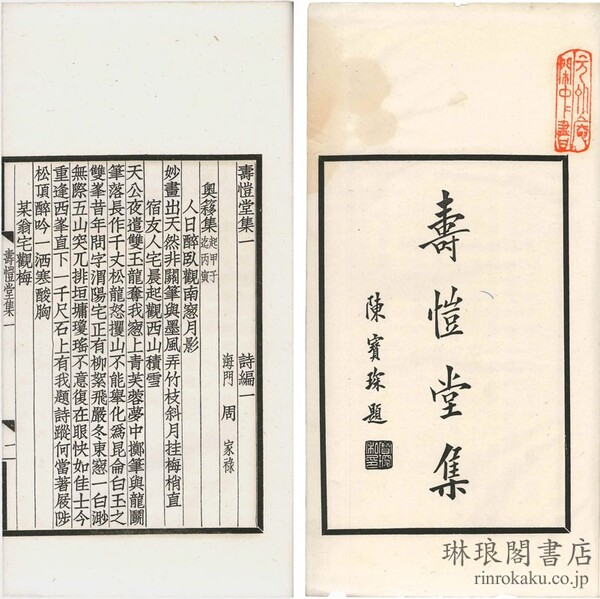 壽愷堂集
陳寶琛題
壽愷堂集一 詩編一
海門 周家祿
奧簃集 起甲子迄丙寅
人日醉臥觀南窻月影
妙畫出天然非關筆與墨風弄竹枝斜月挂梅梢直
宿友人宅晨起觀西山積雪
天公夜遣雙玉龍奪我窻上青芙蓉夢中擲筆與龍鬭
筆落長作千丈松龍怒攫山不能舉化爲昆侖白玉之
雙峯昔年問字渭陽宅正有柳絮飛嚴冬東窻一白渺
無際五山突兀排垣墉瓊瑤不意復在眼快如佳士今
重逢西峯直下一千尺石上有我題詩蹤何當著屐陟
松頂醉吟一洒寒酸胸
某翁宅觀梅
壽愷堂集一 一
琳琅閣書店
rinrokaku.co.jp